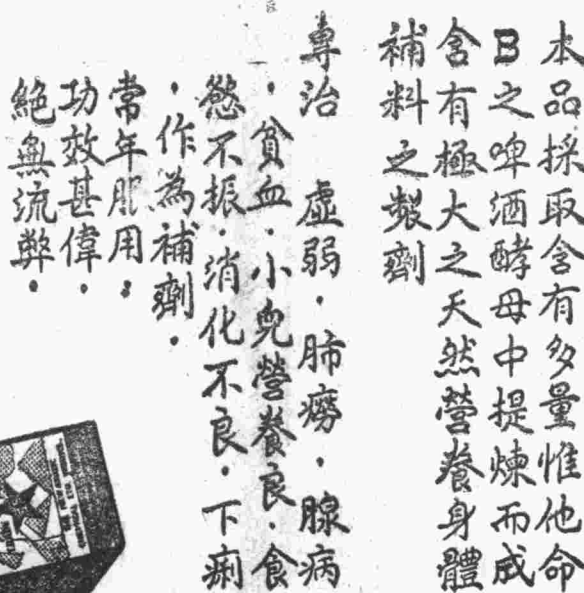 本品採取含有多量惟他命
B之啤酒酵母中提煉而成
含有極大之天然營養身體
補料之製劑
專治 虛弱．肺癆．腺病
．貧血．小兒營養良．食
慾不振．消化不良．下痢
．作為補劑．
常年服用：
功效甚偉．
絕無流弊．